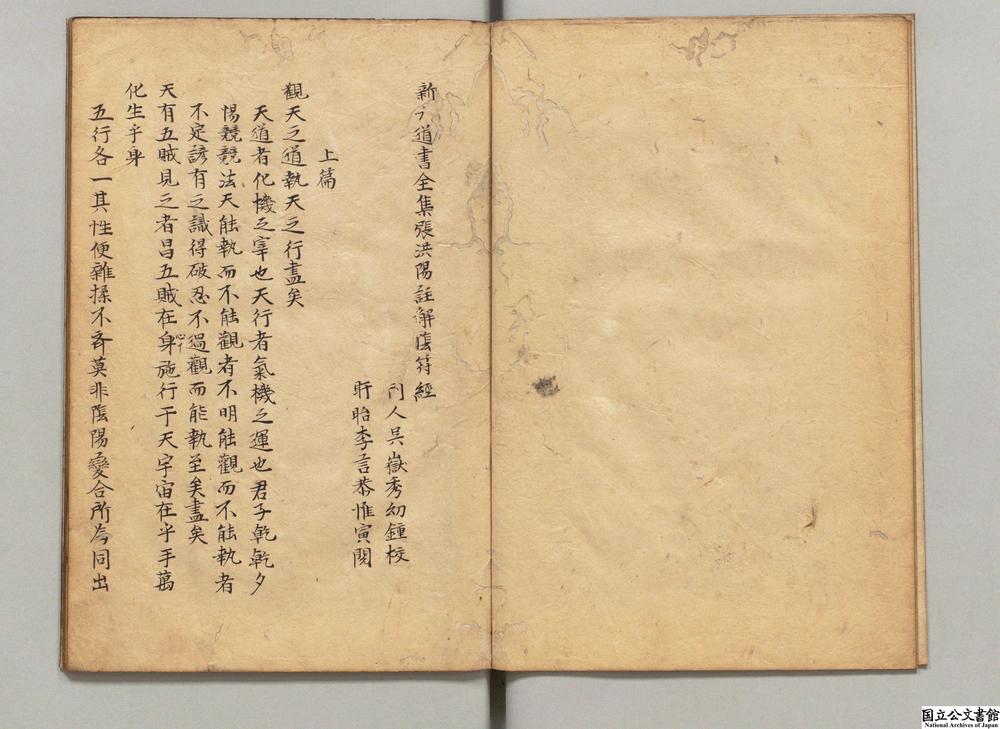 新六道書全集張洪陽註解隂符經
刊人吳嶽秀幻鍾校
盱眙李言恭惟寅閱
上篇
觀天之道執天之行盡矣
天道者化機之宰也天行者氣機之運也君子乾乾夕
惕兢兢法天能執而不能觀者不明能觀而不能執者
不定諺有之識得破忍不過觀而能執至矣盡矣
天有五賊見之者昌五賊在身施行于天宇宙在乎手萬
心
化生乎身
五行各一其性便雜揉不齊莫非隂陽變合所為同出
国立公文書館
National Archives of Japan